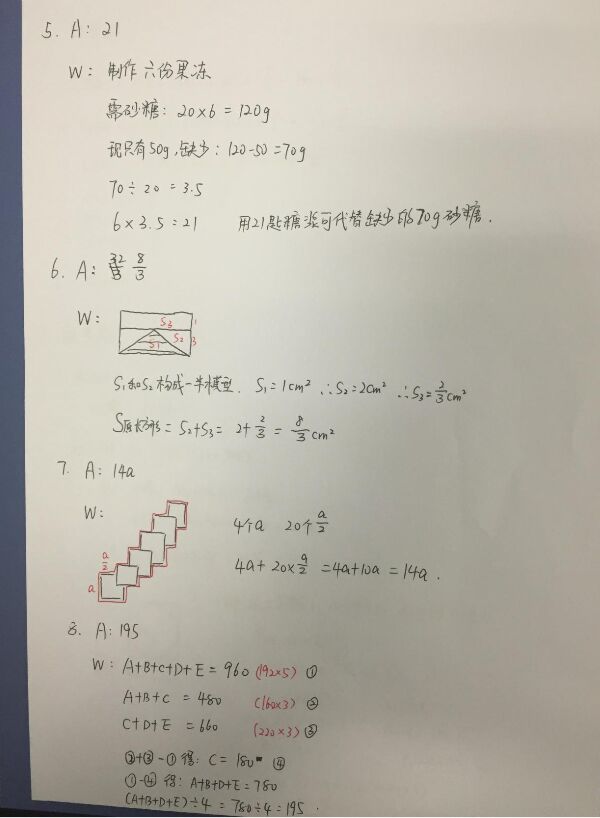 5. A: 21
W: 制作六份果冻
需砂糖: 20×6=120g
现只有50g,缺少: 120-50=70g
70÷20=3.5
6×3.5=21 用21匙糖浆可代替缺少的70g砂糖.
6. A: 8/3
W: S3 1
S1 S2 3
S1和S2构成一半模型. S1=1cm² ∴S2=2cm² ∴S3=2/3cm²
S原长方形=S2+S3=2+2/3=8/3cm²
7. A: 14a
W: 4个a 20个a/2
a/2
a
4a+20×a/2=4a+10a=14a.
8. A: 195
W: A+B+C+D+E=960 (192×5) ①
A+B+C=480 (160×3) ②
C+D+E=660 (220×3) ③
②+③-①得: C=180 ④
①-④得: A+B+D+E=780
(A+B+D+E)÷4=780÷4=195.